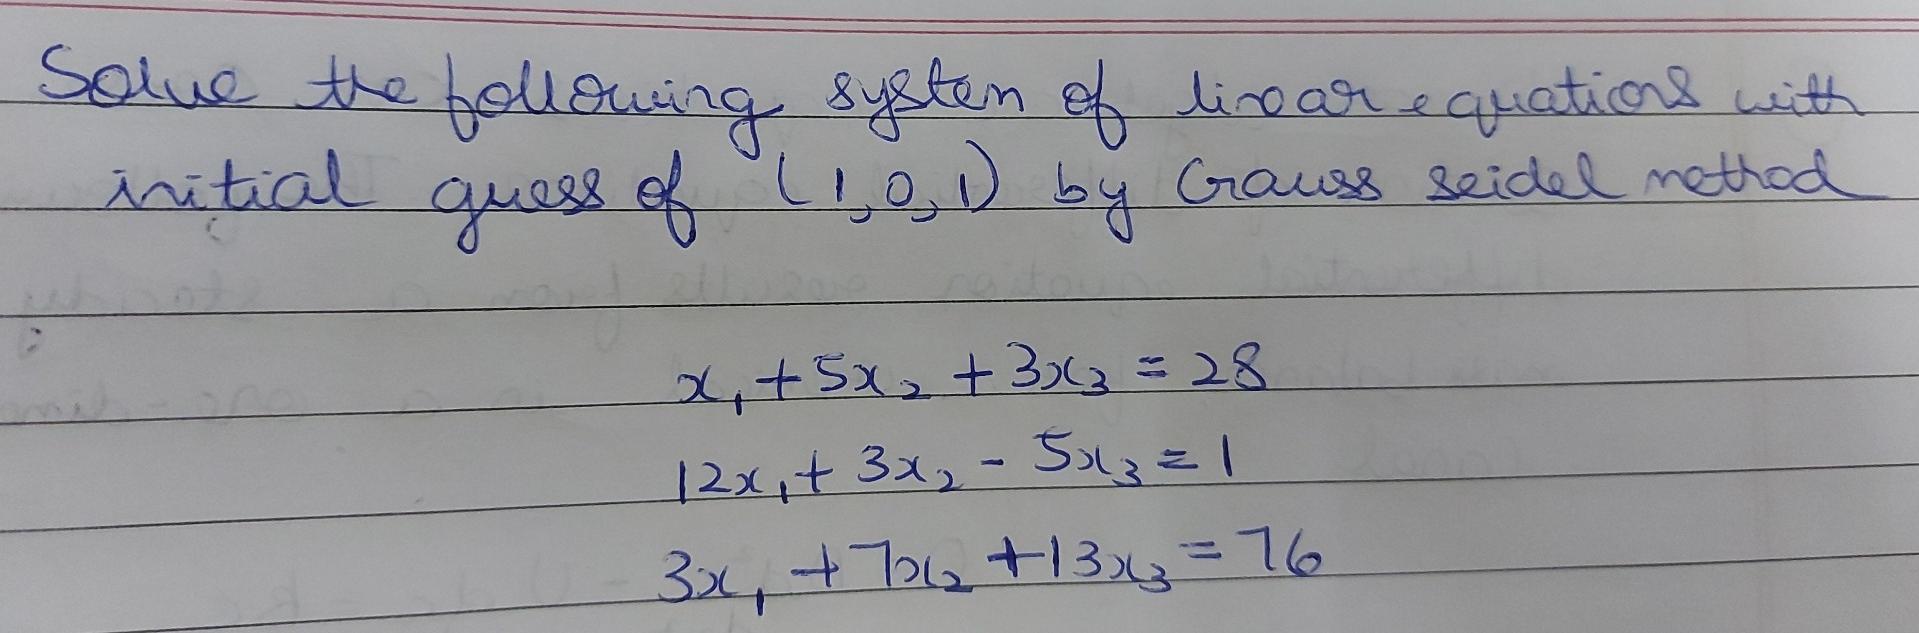 Solve the following system of linear equations with
initial guess of (1,0,1) by Gauss seidel method
x₁ + 5x₂ + 3x₃ = 28
12x₁ + 3x₂ - 5x₃ = 1
3x₁ + 7x₂ + 13x₃ = 76